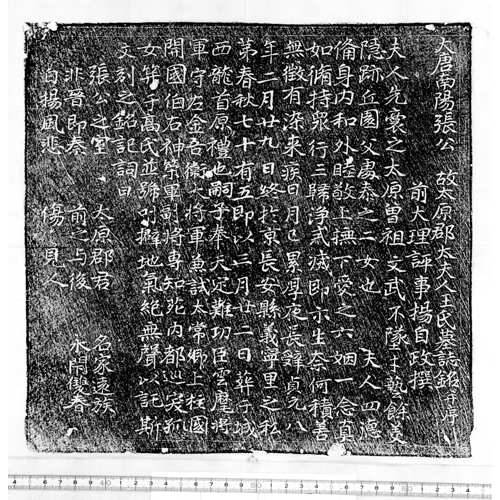 大唐南陽張公 故太原郡太夫人王氏墓誌銘并序
前大理評事揚自政撰
夫人先裳之太原曾祖文武不墜才藝餘美
隱跡丘園父處泰之二女也 夫人四德
俻身内和外睦敬上撫下愛之六姻一念真
如俻持衆行三歸淨戒滅即示生奈何積善
無徵有染來疾日月已累厚夜長辤貞元八
年二月廿九日終於京長安縣義寧里之私
第春秋七十有五即以三月廿二日葬于城
西龍首原禮也嗣子奉天定難功臣雲麾將
軍守左金吾衛大將軍兼試太常卿上柱國
開國伯右神策軍副將專知苑内都巡宼孤
女等于髙氏並躃 擗地氣絶無聲以託斯
文刻之銘記詞曰
張公之室 太原郡君 名家遠族
非晉即秦 前之与後 水閇雙春
白揚風悲 傷見人